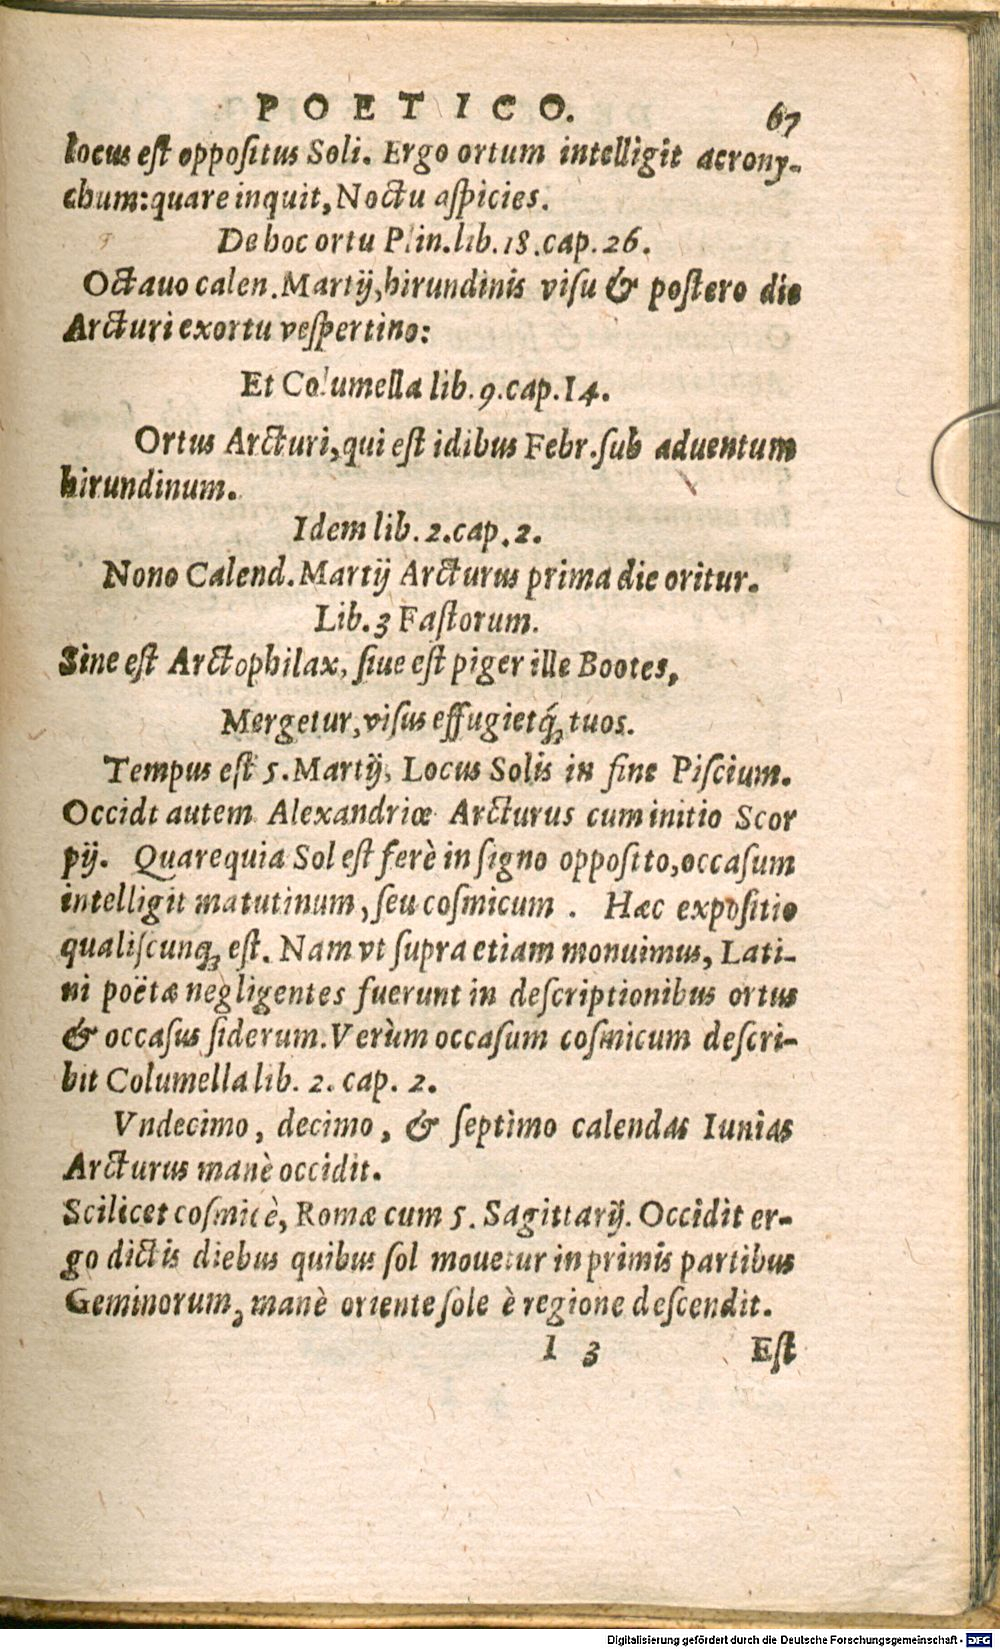 POETICO. 67
locus est oppositus Soli. Ergo ortum intelligit acrony-
chum: quare inquit, Noctu aspicies.
De hoc ortu Plin. lib. 18. cap. 26.
Octauo calen. Martij, hirundinis visu & postero die
Arcturi exortu vespertino:
Et Columella lib. 9. cap. 14.
Ortus Arcturi, qui est idibus Febr. sub aduentum
hirundinum.
Idem lib. 2. cap. 2.
Nono Calend. Martij Arcturus prima die oritur.
Lib. 3 Fastorum.
Sine est Arctophilax, siue est piger ille Bootes,
Mergetur, visus effugietq́ꝫ tuos.
Tempus est 5. Martij, Locus Solis in fine Piscium.
Occidt autem Alexandriæ Arcturus cum initio Scor
pij. Quare quia Sol est ferè in signo opposito, occasum
intelligit matutinum, seu cosmicum. Hæc expositio
qualiscunqꝫ est. Nam vt supra etiam monuimus, Lati-
ni poëtæ negligentes fuerunt in descriptionibus ortus
& occasus siderum. Verùm occasum cosmicum descri-
bit Columella lib. 2. cap. 2.
Vndecimo, decimo, & septimo calendas Iunias
Arcturus manè occidit.
Scilicet cosmicè, Romæ cum 5. Sagittarij. Occidit er-
go dictis diebus quibus sol mouetur in primis partibus
Geminorum, manè oriente sole è regione descendit.
I 3 Est
Digitalisierung gefördert durch die Deutsche Forschungsgemeinschaft - DFG